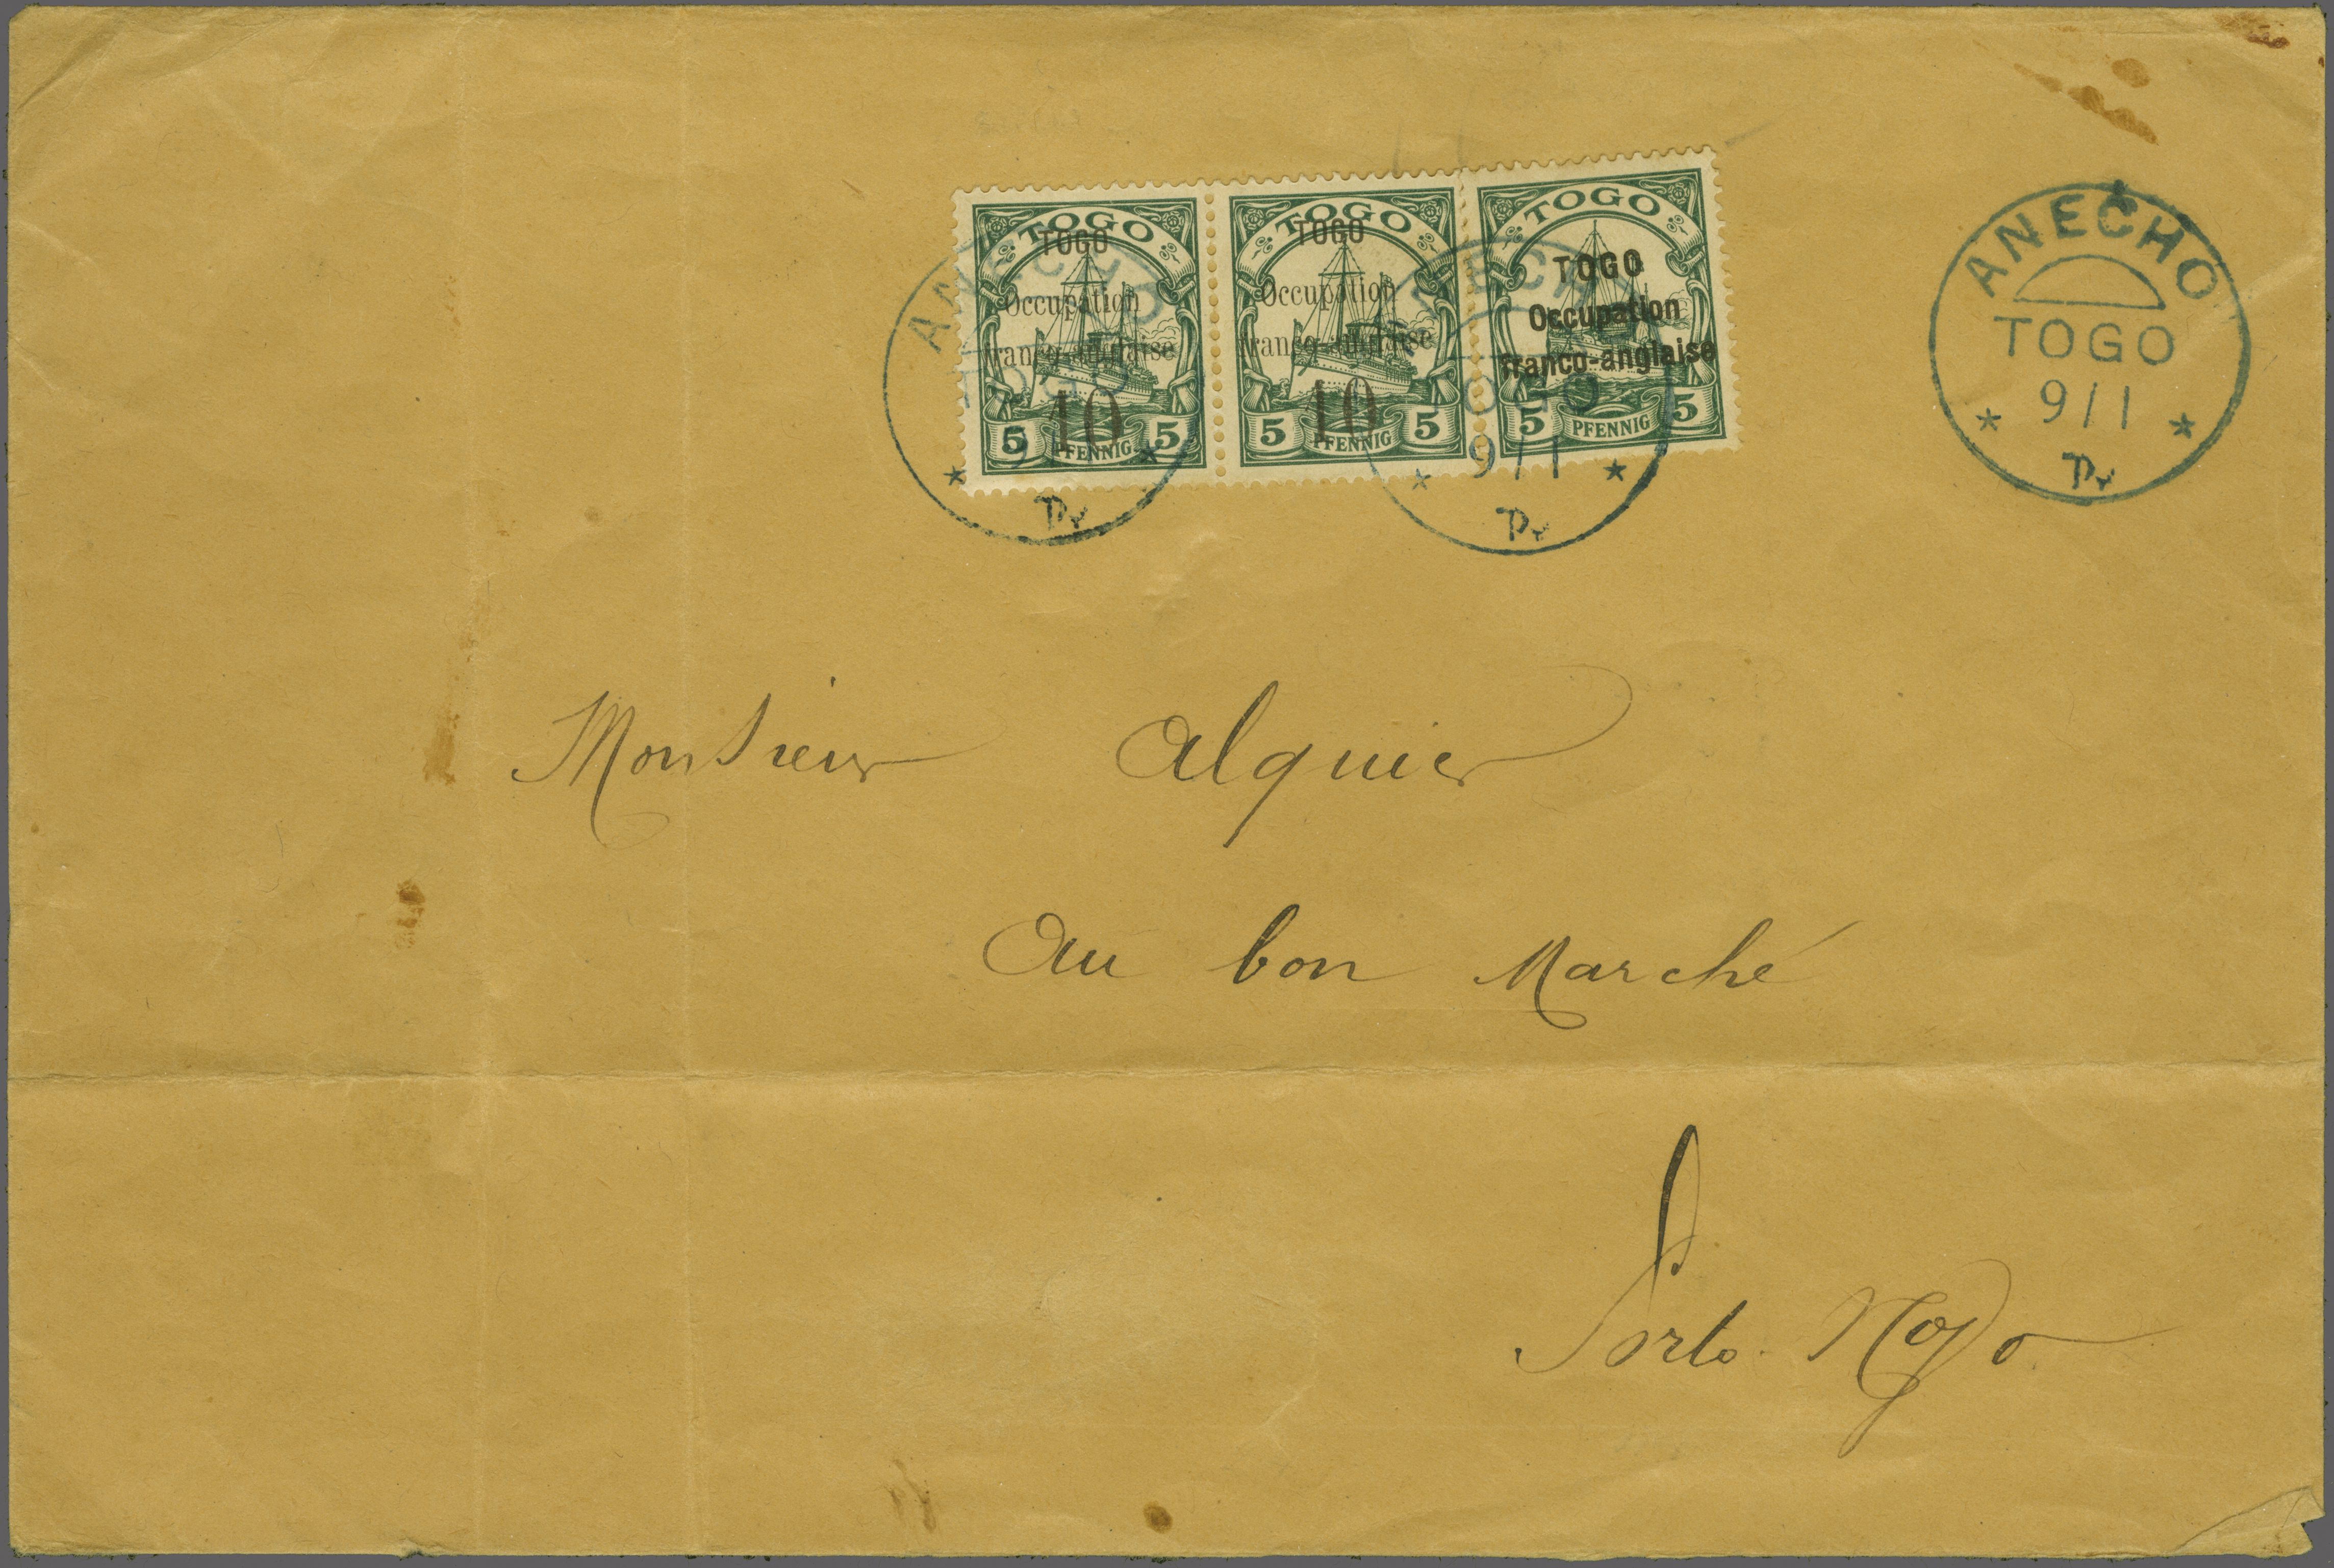 TOGO
TOGO
Occupation
franco-anglaise
10
5 PFENNIG 5
TOGO
TOGO
Occupation
franco-anglaise
10
5 PFENNIG 5
TOGO
TOGO
Occupation
franco-anglaise
5 PFENNIG 5
ANECHO
TOGO
9/1
* *
ANECHO
TOGO
9/1
* *
ANECHO
TOGO
9/1
* *
Monsieur Alquier
Au bon Marché
Porto. Novo